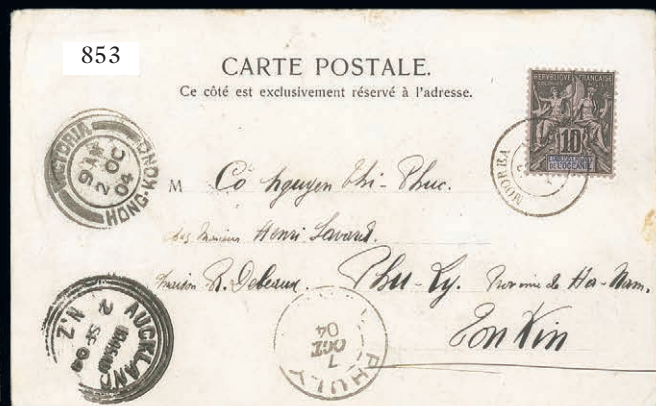 853
CARTE POSTALE.
Ce côté est exclusivement réservé à l'adresse.
RÉPUBLIQUE FRANÇAISE
10
MOOREA
VICTORIA
9 AM
2 OC
04
HONG-KONG
M Cô Nguyen thi-Phuc.
chez Monsieur Henri Lavard.
Maison R. Debeaux. Phu-Ly. Province de Ha-Nam.
Tonkin
AUCKLAND
2
SE
04
N.Z
7
OCT
04
PHULY